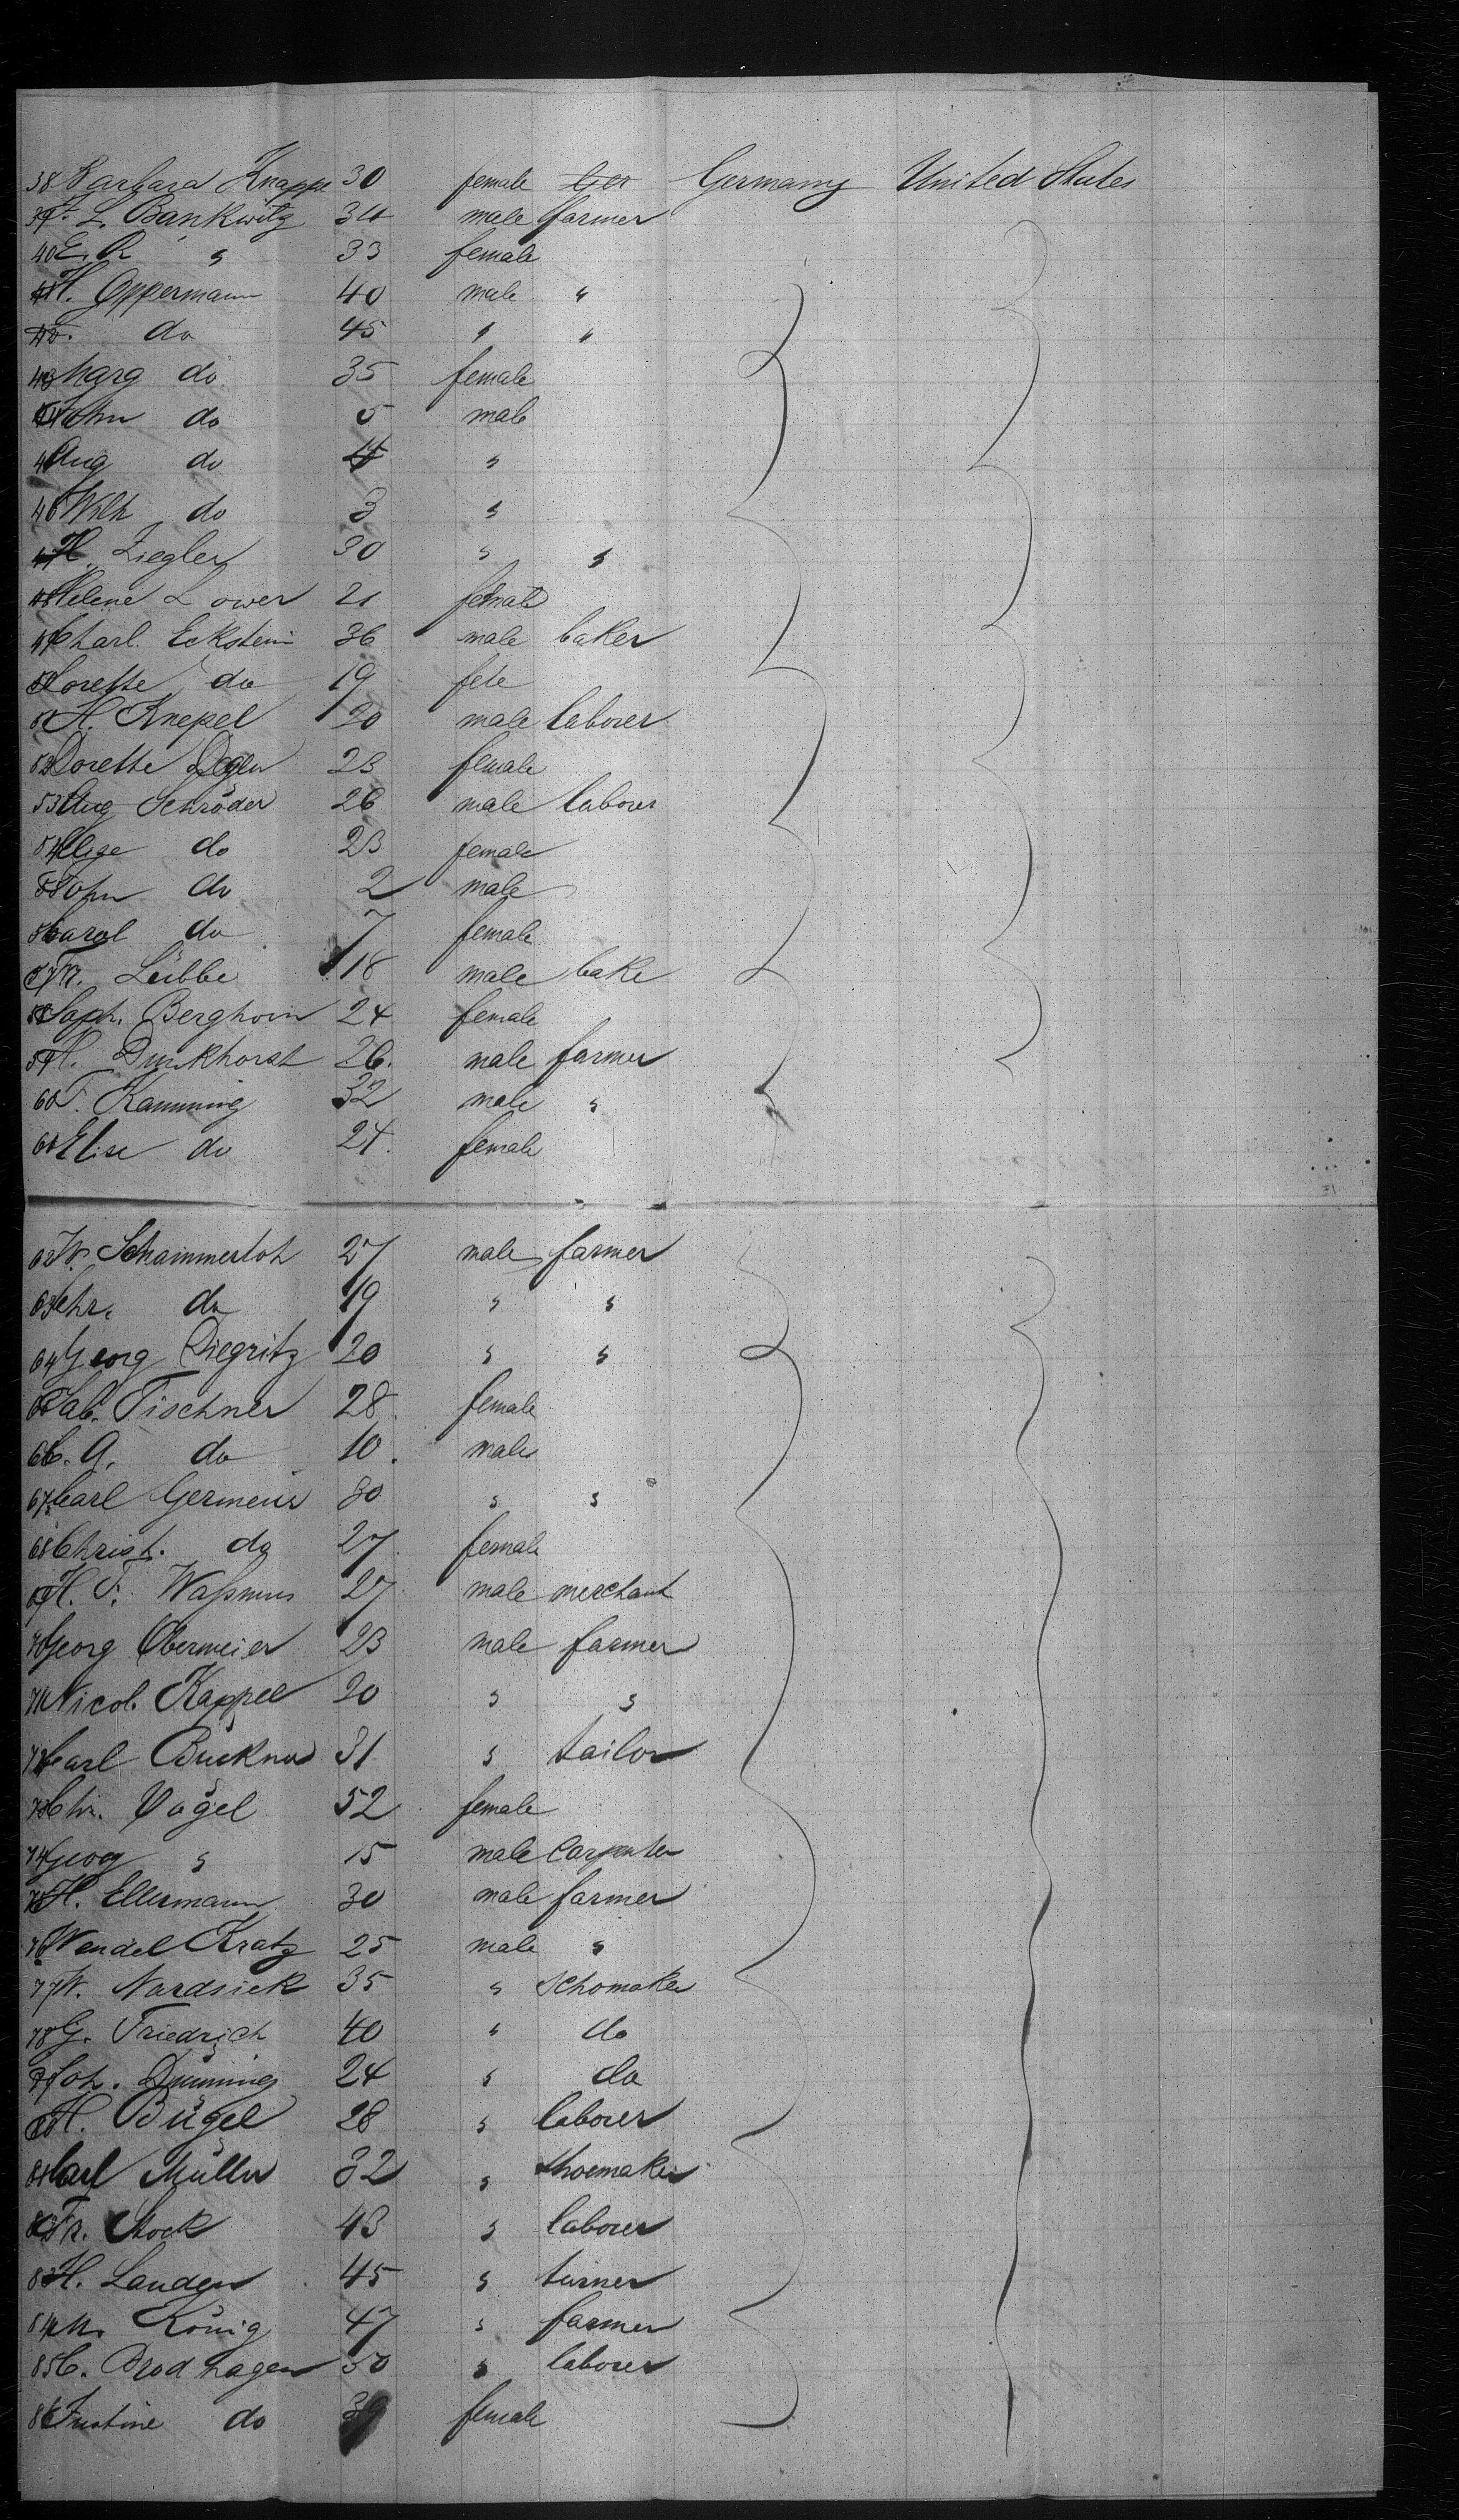 38 Barbara Knappe 30 female Germany United States
39 F. L. Bankwitz 34 male farmer
40 E. R " 33 female
41 H. Oppermann 40 male "
42 do 45 " "
43 Marg do 35 female
44 John do 5 male
45 Aug do 4 "
46 Wilh do 3 "
47 H. Ziegler 30 " "
48 Helene Lower 21 female
49 Charl. Eckstein 36 male baker
50 Lorette do 19 fele
51 H. Knepel 20 male laborer
52 Dorette 23 female
53 Aug Schröder 26 male laborer
54 Elise do 23 female
55 John do 2 male
56 Carol do 7 female
57 Fr. Lübbe 18 male bake
58 Soph. Berghorn 24 female
59 H. Dunkhorst 26. male farmer
60 F. Kamming 32 male "
61 Elise do 24. female
62 W. Schaimmerloh 27 male farmer
63 Chr. do 19 " "
64 Georg Diegritz 20 " "
65 Sab. Tischner 28. female
66 C. A. do 10. male
67 Carl Germeur 30 " "
68 Christ. do 27. female
69 H. F. Waßmus 27. male merchant
70 Georg Obermeier 23 male farmer
71 Nicol. Kappel 20 " "
72 Carl Bückner 31 " tailor
73 Chr. Vögel 52 female
74 Georg " 15 male Carpenter
75 H. Ellermann 30 male farmer
76 Wendel Kratz 25 male "
77 W. Nardsiek 35 " Schomaker
78 G. Friedrich 40 " do
79 Joh. Dümming 24 " do
80 H. Bügel 28 " laborer
81 Carl Müller 32 " shoemaker
82 Fr. Stock 43 " laborer
83 H. Landgen 45 " turner
84 M. König 47 " farmer
85 C. Brodhagen 50 " laborer
86 Justine do female